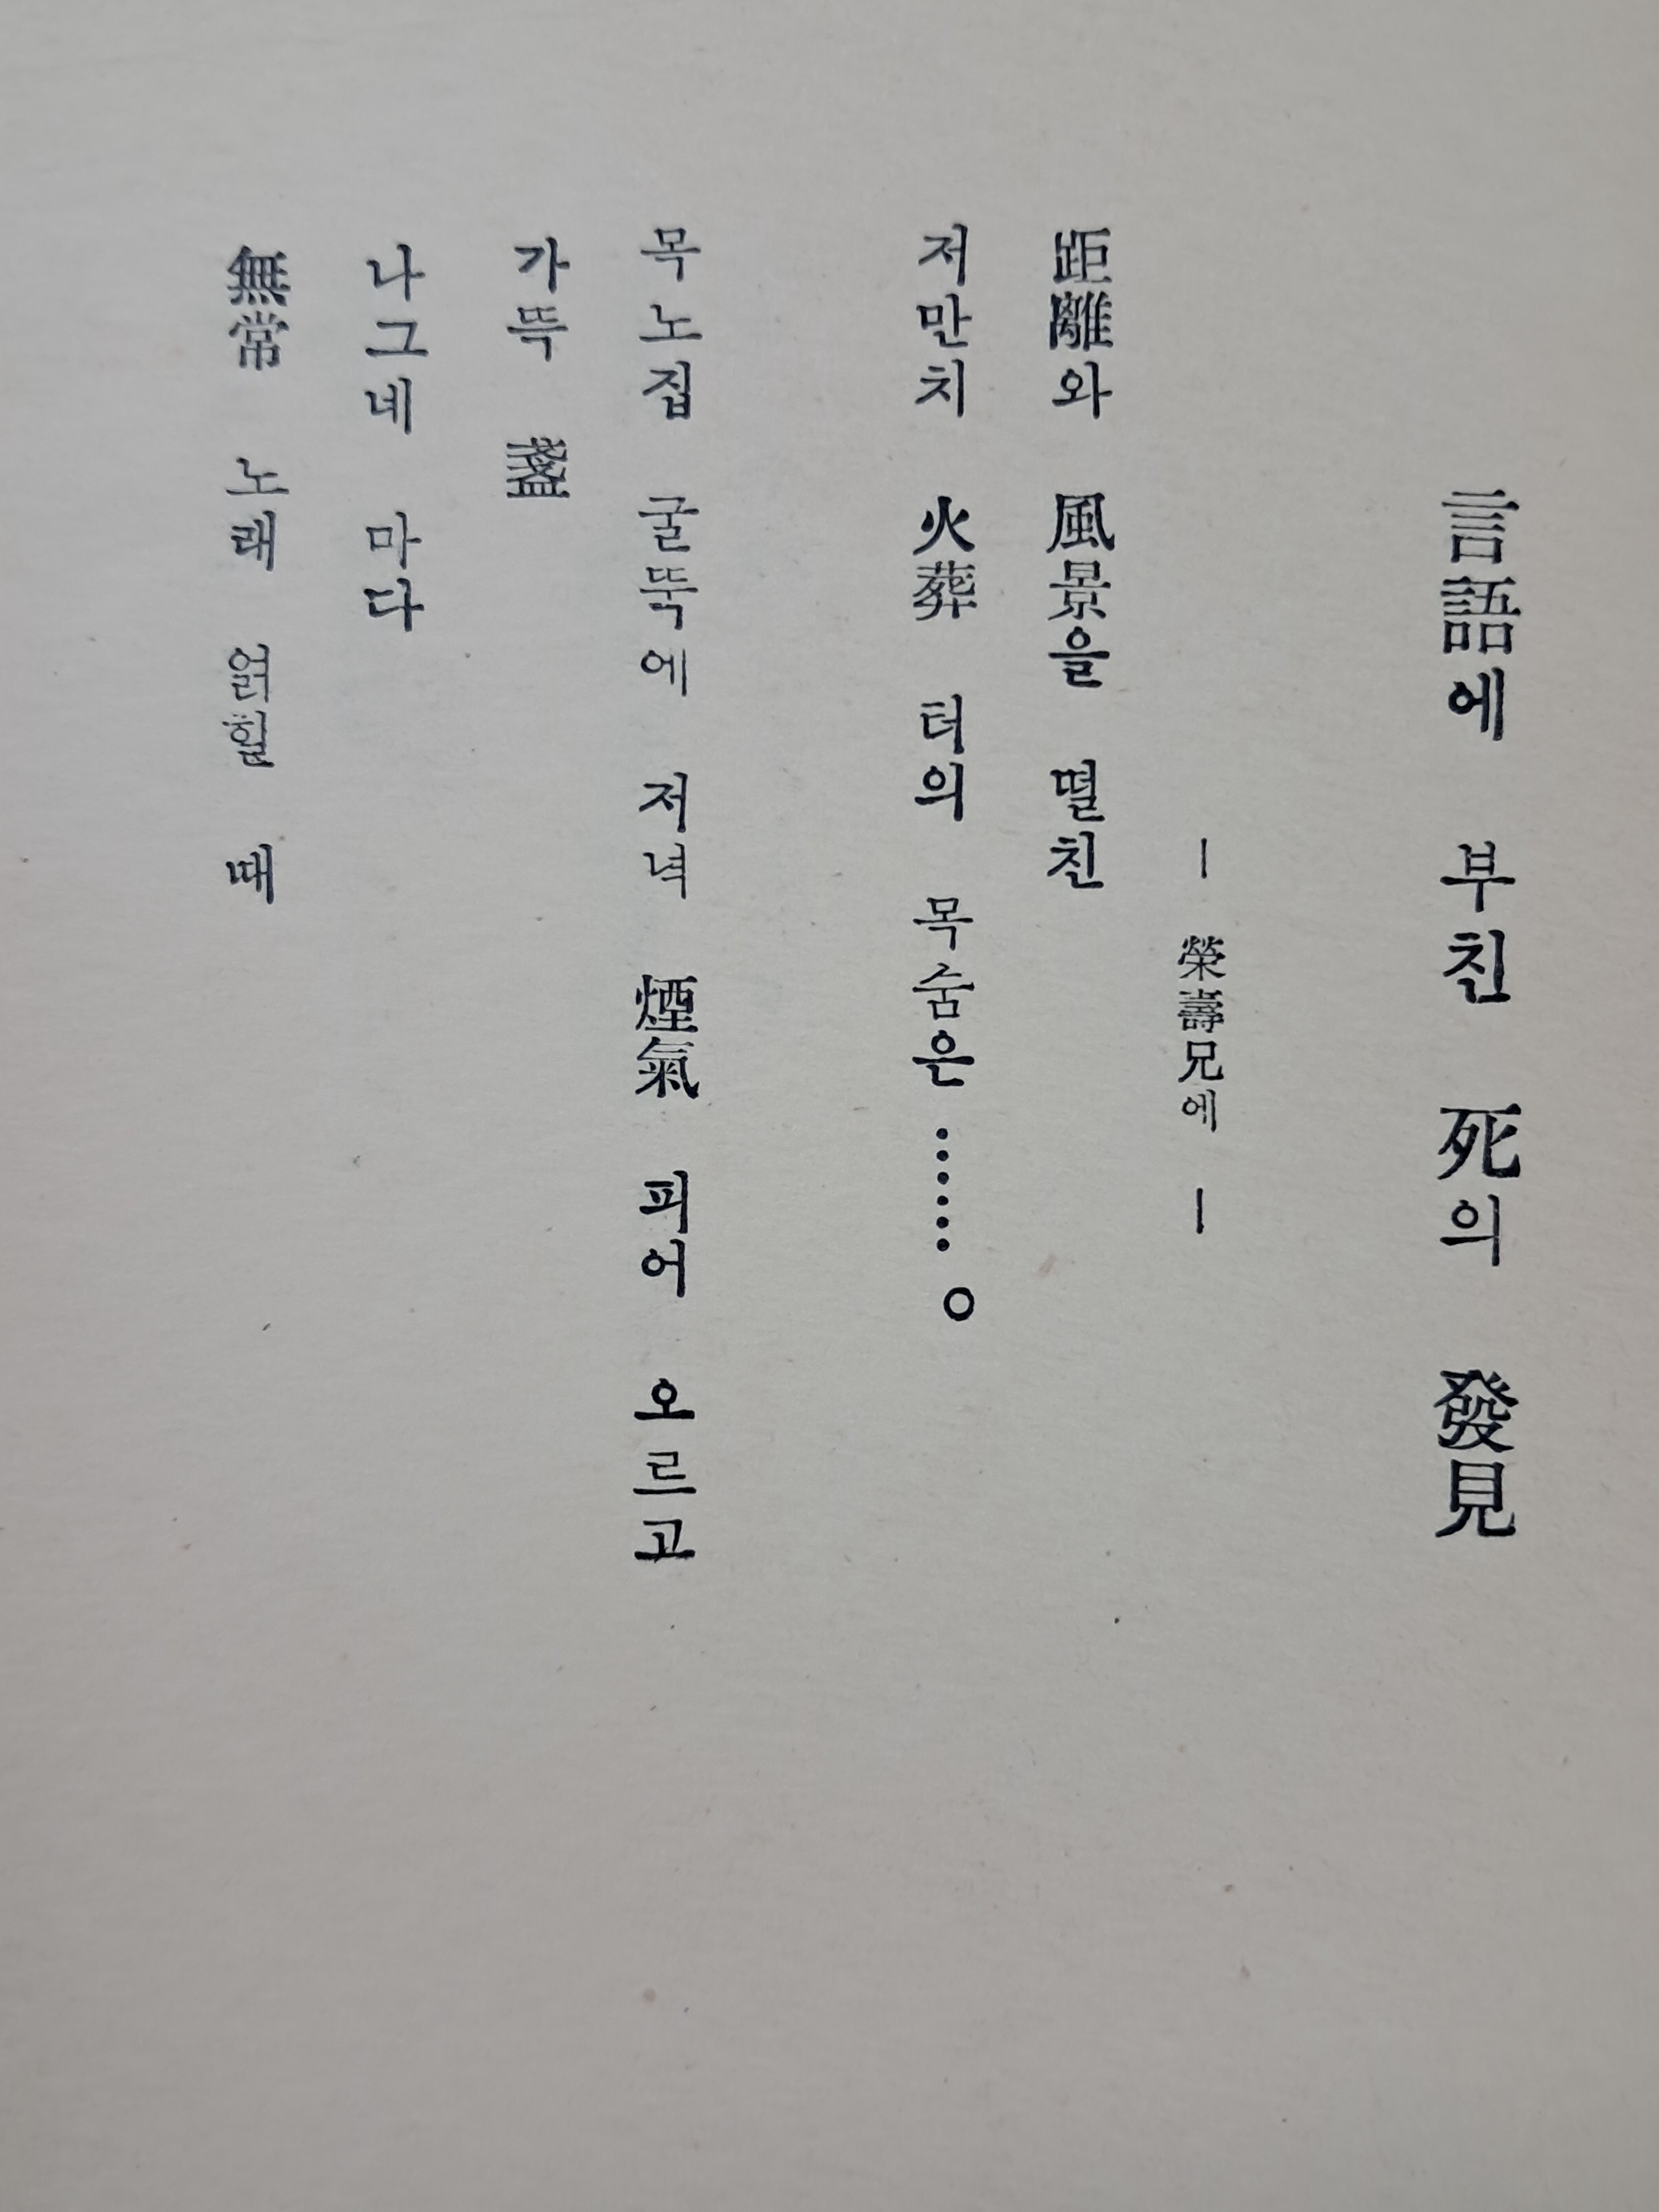 言語에 부친 死의 發見
― 榮壽兄에 ―
距離와 風景을 떨친
저만치 火葬 터의 목숨은……。
목노집 굴뚝에 저녁 煙氣 피어 오르고
가뜩 盞
나그네 마다
無常 노래 얽힐 때